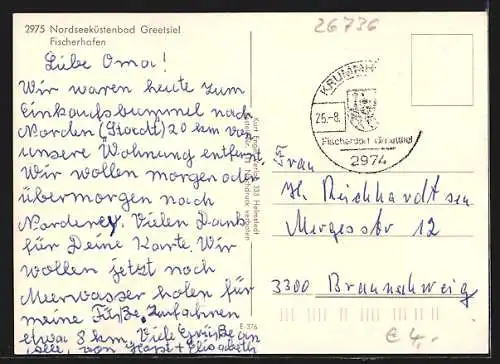 26736
2975 Nordseeküstenbad Greetsiel
Fischerhafen
Liebe Oma!
Wir waren heute zum
Einkaufsbummel nach
Norden (Stadt) 20 km von
unsere Wohnung entfernt.
Wir wollen morgen oder
übermorgen nach
Norderney. Vielen Dank
für Deine Karte. Wir
wollen jetzt noch
Meerwasser holen für
meine Füße. Zufahren
etwa 8 km. Viele Grüße an
alle, von + Elisabeth
KRUMMH
25.-8.
Fischerdorf Greetsiel
2974
Frau
Reichhardt sen
12
3300 Braunschweig
E 376
€ 4,-